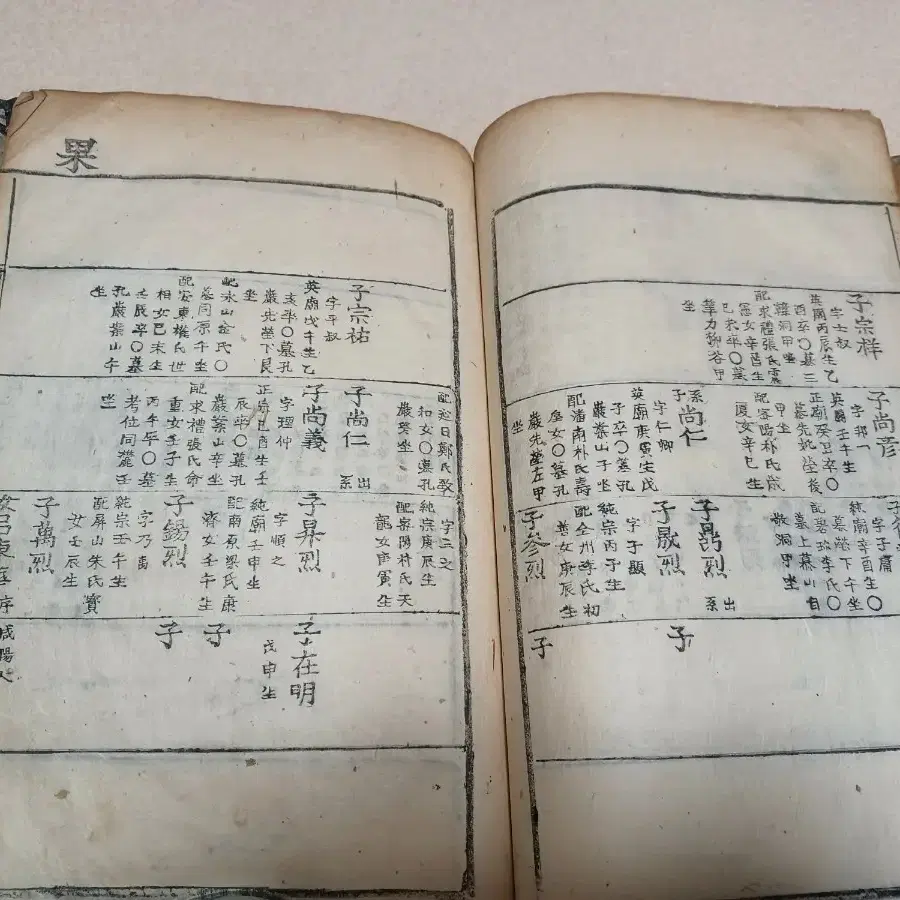 子宗祥
字士叔
英廟丙辰生乙
酉卒〇墓三
韓洞甲坐
配求禮張氏震
己未卒〇墓
柳谷甲
坐
子尚彦
英廟壬午生〇
正廟癸卯卒〇
墓先妣塋後
甲坐
配密陽朴氏成
厦女辛巳生
系子尚仁
字仁卿
英廟庚寅生戊
子卒〇墓孔
巖業山子坐
配潘南朴氏壽
垕女〇墓孔
巖先塋左甲
坐
純廟辛酉生〇
下午坐
李氏〇
敬洞甲坐
出系
子晟烈
字子顯
純宗丙子生
配全州李氏初
善女庚辰生
子參烈
子
子
果
子宗祐
字平叔
英廟戊午生乙
亥卒〇墓孔
巖先塋下艮
坐
配永山金氏〇
墓同原午坐
配安東權氏世
相女己未生
壬辰卒〇墓
孔巖業山午
坐
配延日鄭氏敎
和女〇墓孔
巖癸坐
子尚仁 出系
子尚義
字理仲
辰卒〇墓孔
巖業山辛坐
配求禮張氏命
重女壬子生
丙午卒〇墓
考位同麓壬
坐
字士文
純宗庚辰生
配密陽朴氏天
龍女庚寅生
子昇烈
字順之
純廟壬申生
配南原梁氏康
濟女壬午生
子錫烈
字乃禹
純宗壬午生
配屏山朱氏寶
女壬辰生
子萬烈
子在明
戊申生
子
子
咸陽人